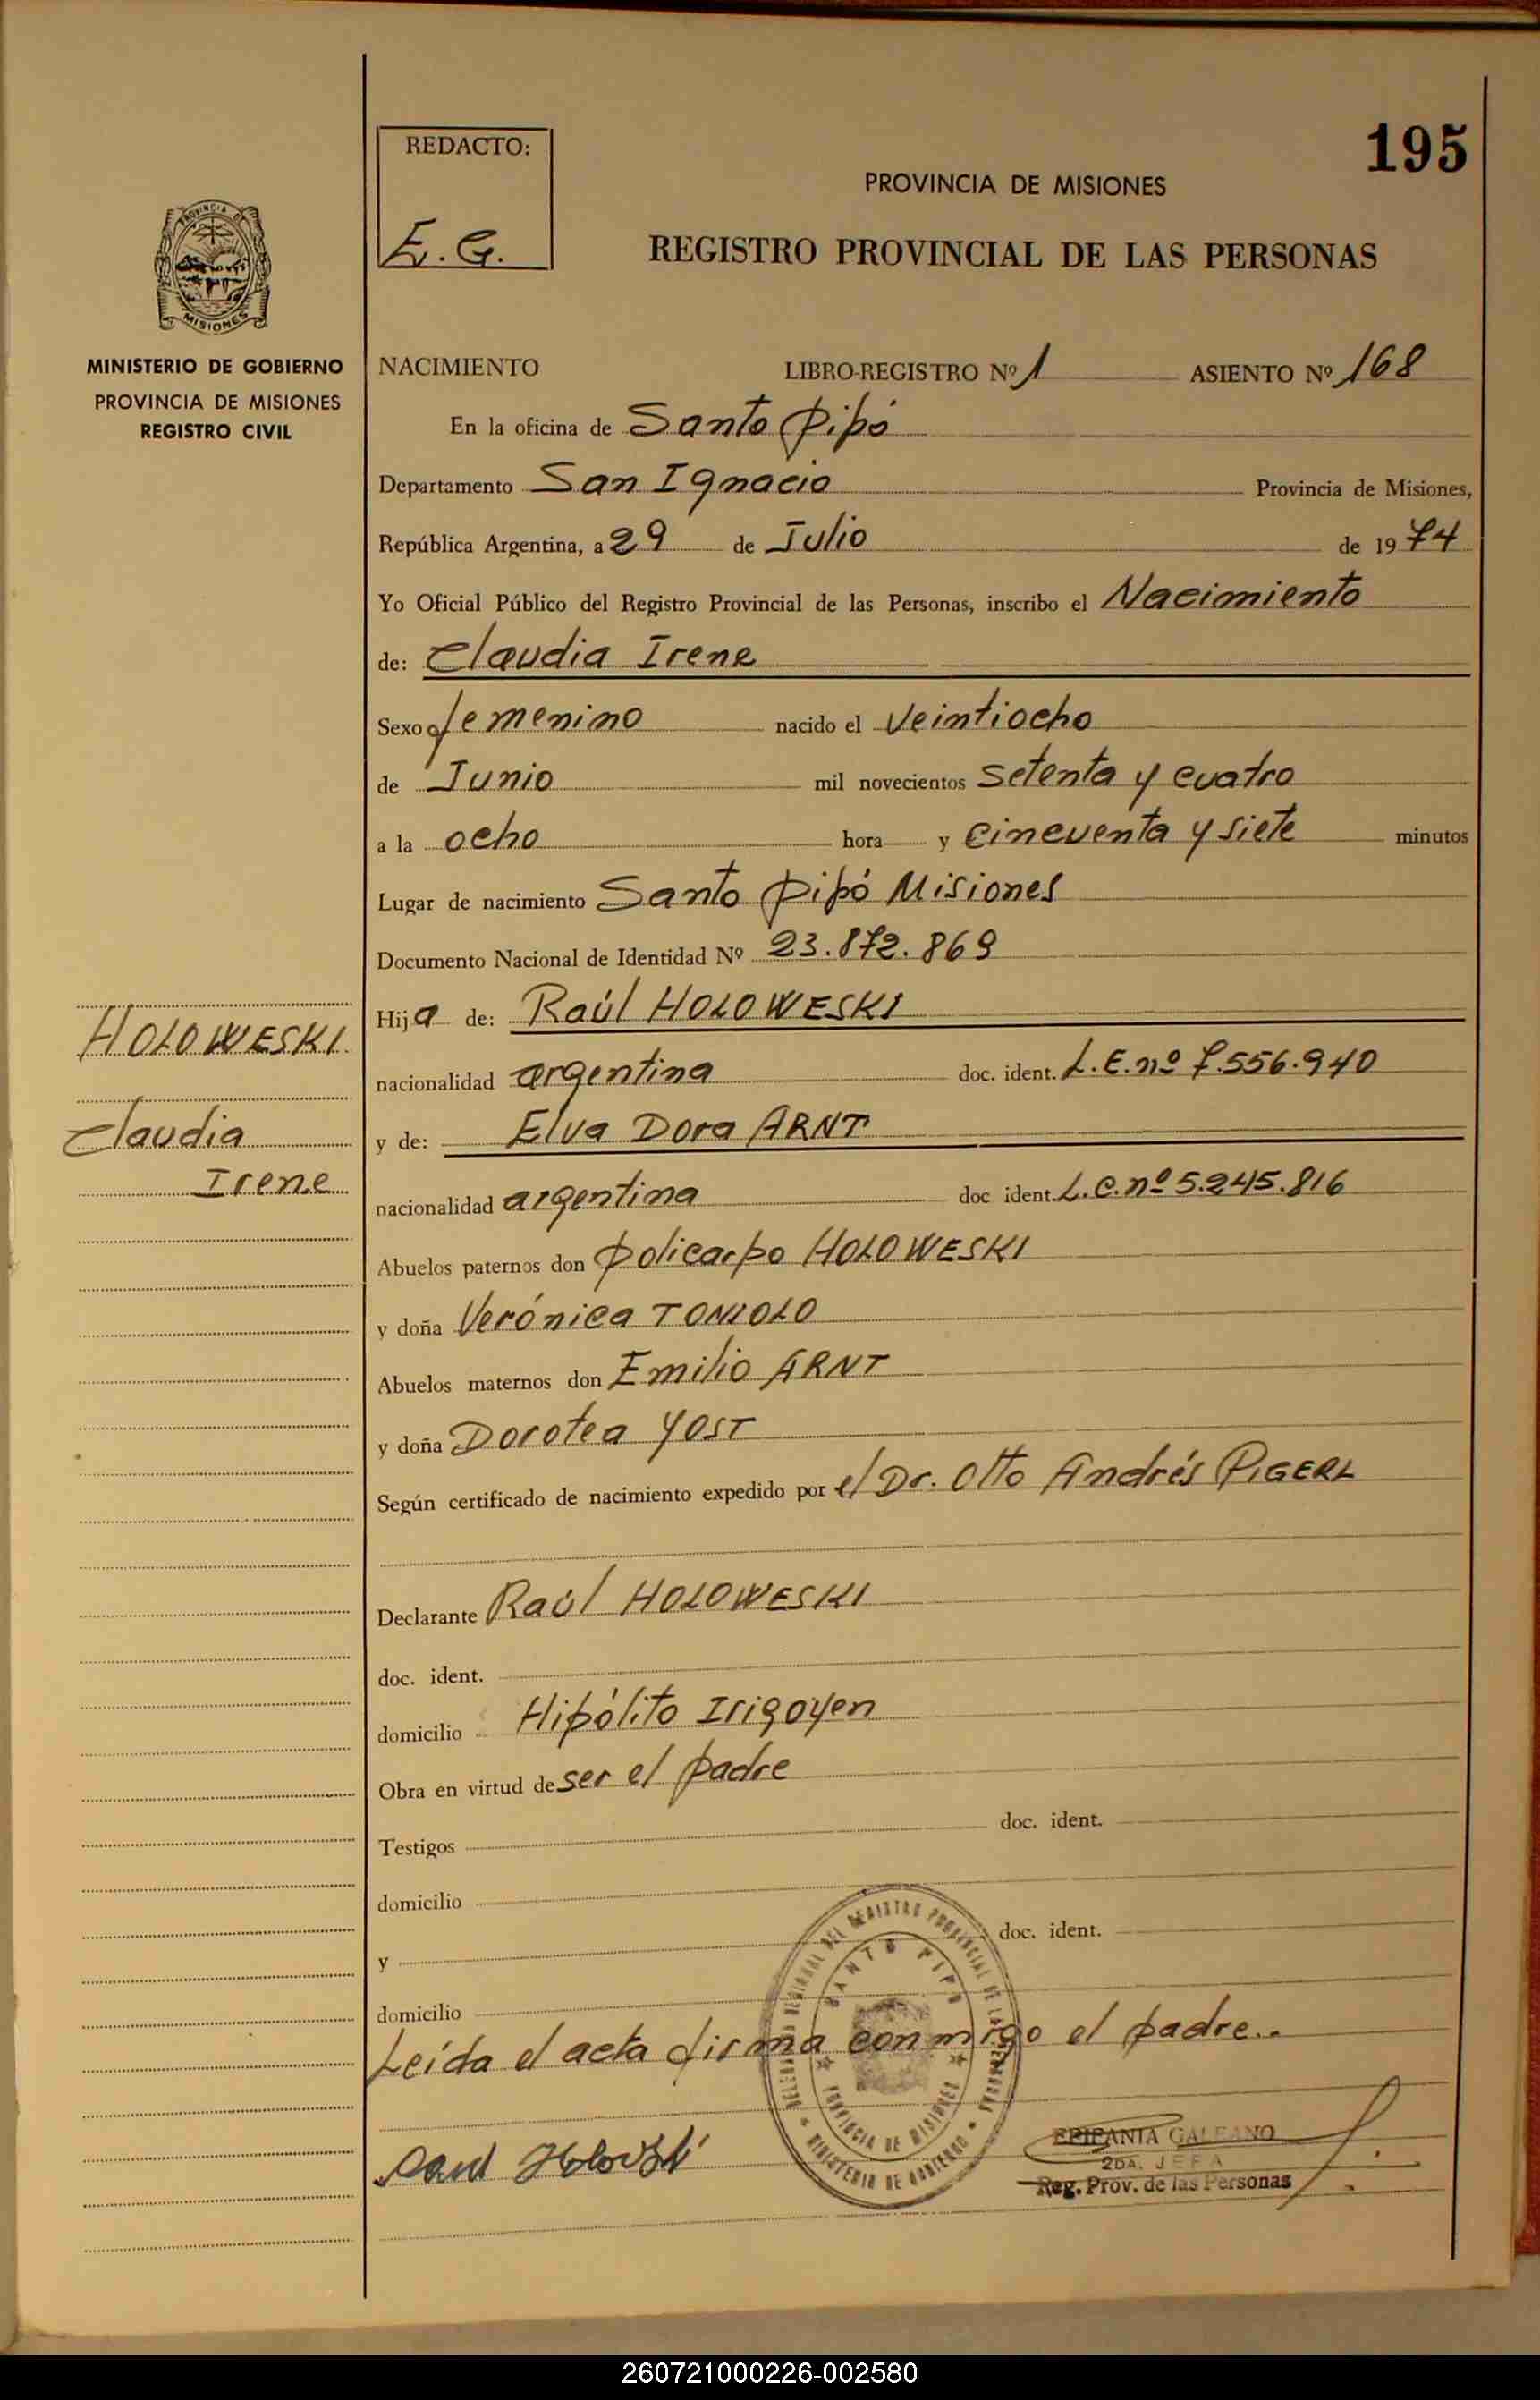 195
REDACTO:
E. G.
PROVINCIA DE MISIONES
REGISTRO PROVINCIAL DE LAS PERSONAS
PROVINCIA DE
MISIONES
MINISTERIO DE GOBIERNO
PROVINCIA DE MISIONES
REGISTRO CIVIL
NACIMIENTO LIBRO-REGISTRO Nº 1 ASIENTO Nº 168
En la oficina de Santo Pipó
Departamento San Ignacio Provincia de Misiones,
República Argentina, a 29 de Julio de 1974
Yo Oficial Público del Registro Provincial de las Personas, inscribo el Nacimiento
de: Claudia Irene
Sexo femenino nacido el veintiocho
de Junio mil novecientos setenta y cuatro
a la ocho hora y cincuenta y siete minutos
Lugar de nacimiento Santo Pipó Misiones
Documento Nacional de Identidad Nº 23.872.869
Hija de: Raúl HOLOWESKI
HOLOWESKI
nacionalidad argentina doc. ident. L.E. nº 7.556.940
Claudia
y de: Elva Dora ARNT
Irene
nacionalidad argentina doc ident. L.C. nº 5.245.816
Abuelos paternos don Policarpo HOLOWESKI
y doña Verónica TONIOLO
Abuelos maternos don Emilio ARNT
y doña Dorotea YOST
Según certificado de nacimiento expedido por el Dr. Otto Andrés PIGERL
Declarante Raúl HOLOWESKI
doc. ident.
domicilio Hipólito Irigoyen
Obra en virtud de ser el padre
Testigos doc. ident.
domicilio
y doc. ident.
domicilio
Leída el acta firma conmigo el padre..
DEL REGISTRO PROVINCIAL DE LAS PERSONAS
SANTO PIPO
PROVINCIA DE MISIONES
MINISTERIO DE GOBIERNO
EPIFANIA GALEANO
2DA. JEFA
Reg. Prov. de las Personas
260721000226-002580